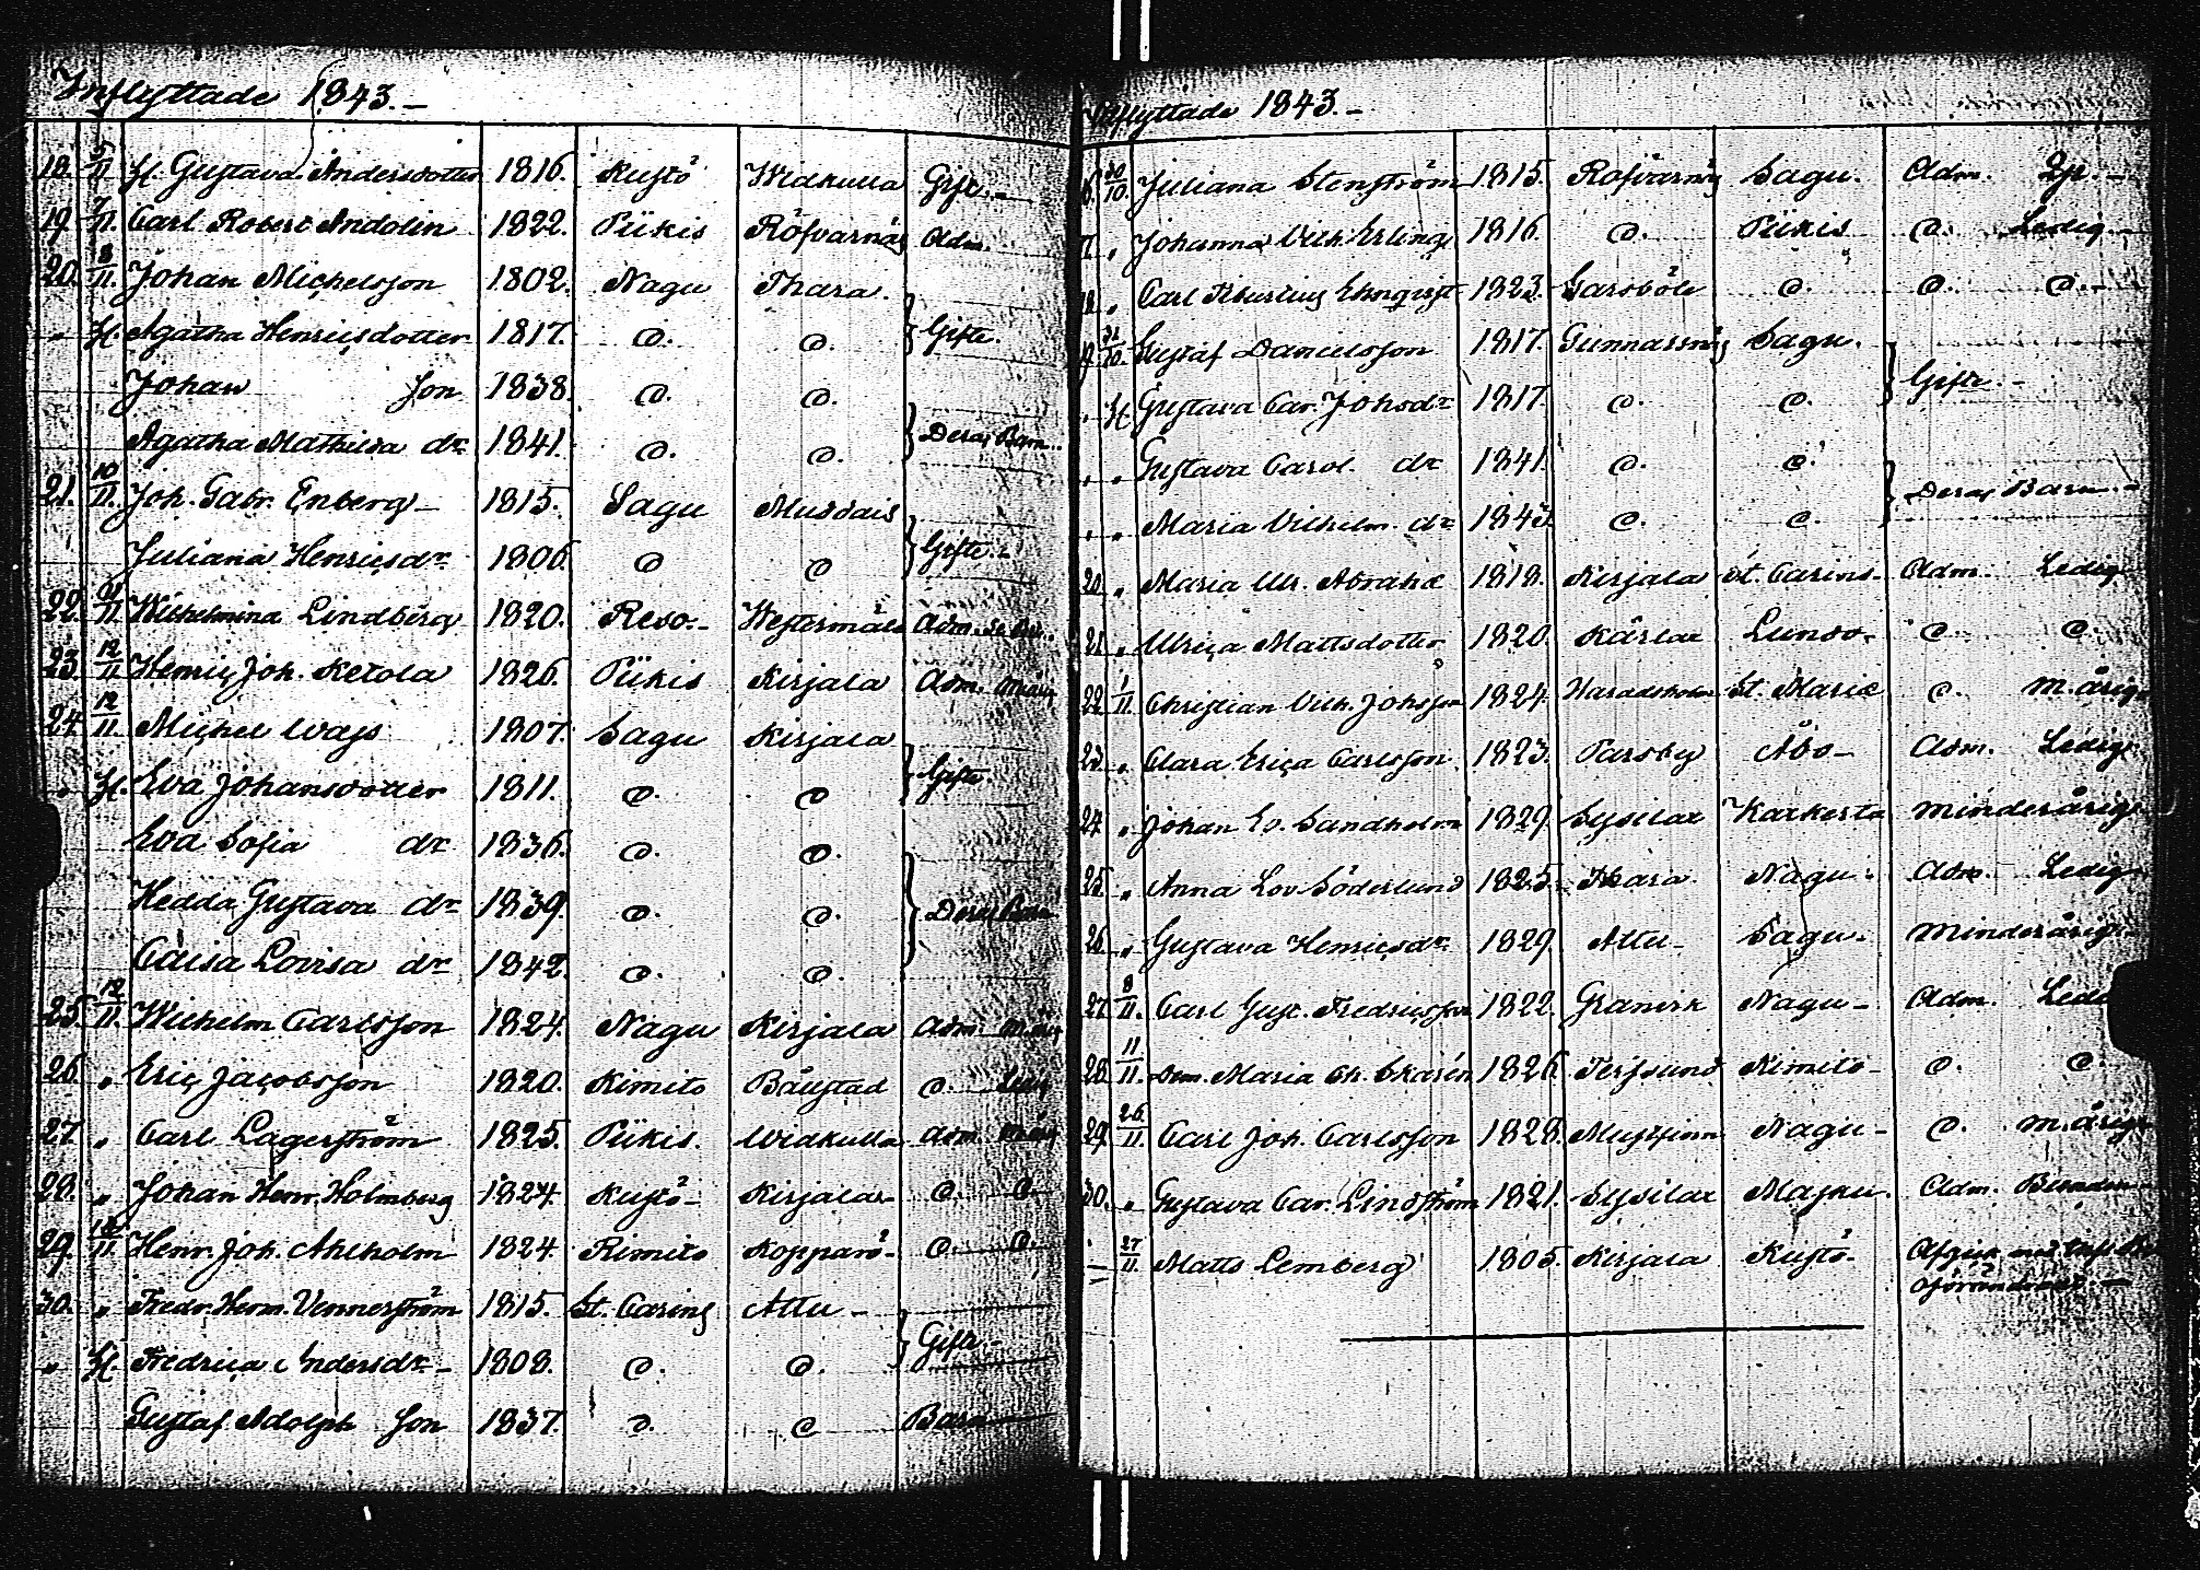 Inflyttade 1843.–
18. 5/11 H. Gustava Andersdotter 1816. Kustö Widkulla Gift.–
19. 7/11. Carl Robert Andolin 1822. Piikis Röfvarnäs Adm.
20. 8/11. Johan Michelsson 1802. Nagu Thara.
" H. Agatha Henricsdotter 1817. d:o d:o Gifte.
Johan Son 1838. d:o d:o
Agatha Mathilda dr 1841. d:o d:o Deras Barn
21. 10/11. Joh. Gabr. Enberg – 1815. Sagu Muddais
Juliana Henricsdr 1806. d:o d:o Gifte.–
22. 11/11 Wilhelmina Lindberg 1820. Reso.– Westermäla Adm.
23. 12/11 Henric Joh. Ketola 1826. Piikis Kirjala Adm. m.årig
24. 12/11. Michel Wass 1807. Sagu Kirjala
" H. Eva Johansdotter 1811. d:o d:o Gifte.
Eva Sofia dr 1836. d:o d:o
Hedda Gustava dr 1839. d:o d:o Deras Barn
Caisa Lovisa dr 1842. d:o d:o
25. 12/11. Wilhelm Carlsson 1824. Nagu Kirjala Adm. m.årig
26. " Eric Jacobsson 1820. Kimito Båustad d:o Ledig
27. " Carl Lagerström 1825. Piikis. Widkulla Adm. m.årig
28. " Johan Henr. Holmberg 1824. Kustö – Kirjala – d:o d:o
29. /11. Henr. Joh. Ahlholm 1824. Kimito Kopparö – d:o d:o
30. " Fredr. Herm. Vennerström 1815. St. Carins Attu –
" H. Fredrica Andersdr – 1808. d:o d:o Gifte.–
Gustaf Adolph Son 1837. d:o d:o Barn
Utflyttade 1843.–
16. 30/10. Juliana Stenström 1815. Rofvarnäs Sagu. Adm.
17. " Johanna Vilh. Erling 1816. d:o Piikis d:o Ledig.–
18. " Carl Tiburtius 1823. Garsböle d:o d:o d:o –
19. 31/10. Gustaf Danielsson 1817. Gunnarsnäs Sagu.
" H. Gustava Car. Johsdr 1817. d:o d:o Gifte.–
" " Gustava Carol. dr 1841. d:o d:o
" " Maria Vilhelm. dr 1843. d:o d:o Deras Barn.–
20. " Maria Ulr. Abrahd 1818. Kirjala St. Carins – Adm. Ledig
21. " Ulrica Mattsdotter 1820. Kärlax Lundo. d:o d:o
22. 1/11 Christian Vilh. Johsson 1824. Haradsholm St. Mariæ d:o m.årig
23. " Clara Erica Carlsson. 1823. Parsby Åbo – Adm. Ledig
24. " Johan Ed. Sandholm 1829. Sysilax Karkerta minderårig
25. " Anna Lov. Söderlund 1825. Thara Nagu. Adm. Ledig
26. " Gustava Henricsdr 1829. Attu – Sagu. minderårig
27. 8/11. Carl Gust. Fredricsson 1822. Granvik Nagu – Adm. Ledig
28. 11/11. Dem. Maria Ch. Skarén 1826. Terfsund Kimito – d:o d:o
29. 26/11. Carl Joh. Carlsson 1828. Mustfinn Nagu – d:o m.årig
30. " Gustava Car. Lindström 1821. Sysilax Masku. Adm.
27/11 Matts Lemberg 1805. Kirjala Kustö. Afgick med
oförändrad.–